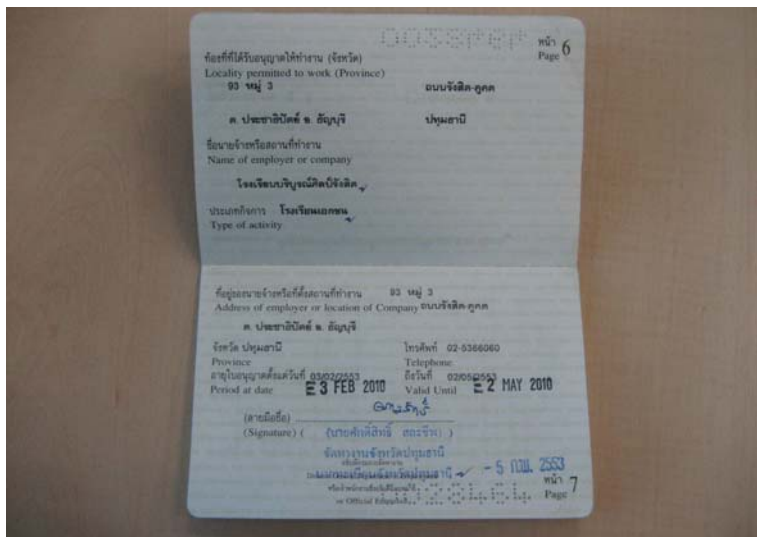 หน้า 6
ท้องที่ที่ได้รับอนุญาตให้ทำงาน (จังหวัด) Page
Locality permitted to work (Province)
93 หมู่ 3 ถนนรังสิต-คูคต
ต. ประชาธิปัตย์ อ. ธัญบุรี ปทุมธานี
ชื่อนายจ้างหรือสถานที่ทำงาน
Name of employer or company
โรงเรียนบริบูรณ์ศิลป์รังสิต
ประเภทกิจการ โรงเรียนเอกชน
Type of activity
ที่อยู่ของนายจ้างหรือที่ตั้งสถานที่ทำงาน 93 หมู่ 3
Address of employer or location of Company ถนนรังสิต-คูคต
ต. ประชาธิปัตย์ อ. ธัญบุรี
จังหวัด ปทุมธานี โทรศัพท์ 02-5366060
Province Telephone
อายุใบอนุญาตตั้งแต่วันที่ 03/02/2553 ถึงวันที่ 02/05/2553
Period at date 3 FEB 2010 Valid Until 2 MAY 2010
(ลายมือชื่อ)
(Signature) ( (นายศักดิ์สิทธิ์ ) )
จัดหางานจังหวัดปทุมธานี
นายทะเบียนจังหวัดปทุมธานี - 5 ก.พ. 2553
หน้า 7
Page